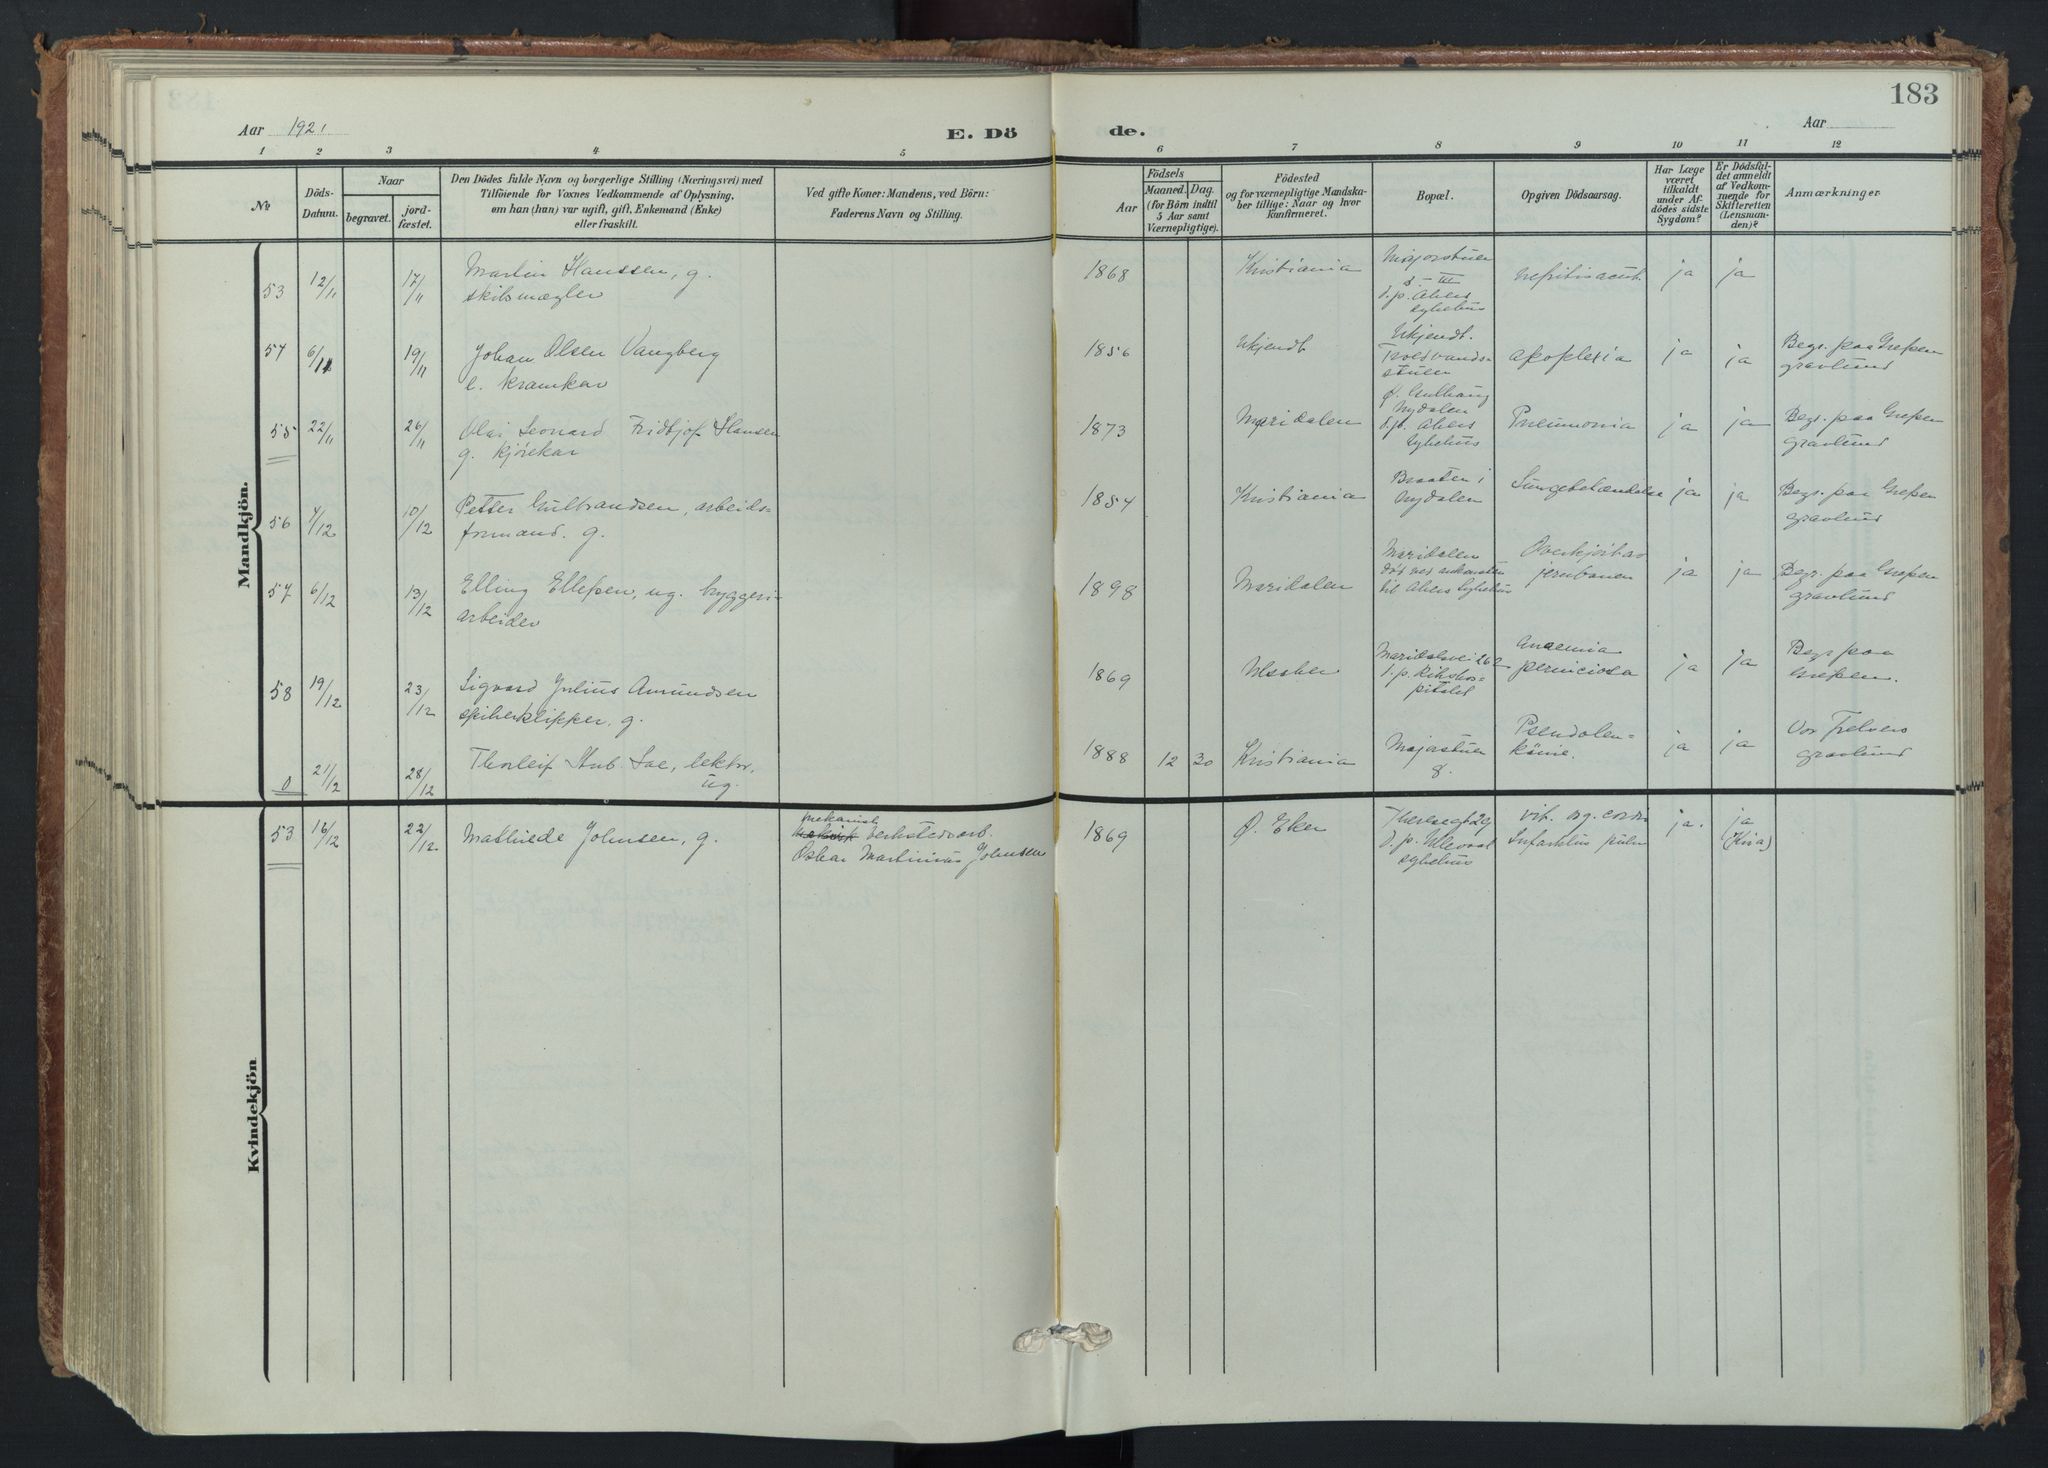 183
Aar 1921
E. Dö
de.
Aar
1 2 3 4 5 6 7 8 9 10 11 12
No.
Döds-
Datum.
Naar
begravet.
jord-
fæstet.
Den Dödes fulde Navn og borgerlige Stilling (Næringsvei) med
Tilföiende for Voxnes Vedkommende af Oplysning,
om han (hun) var ugift, gift, Enkemand (Enke)
eller fraskilt.
Ved gifte Koner: Mandens, ved Börn:
Faderens Navn og Stilling.
Födsels
Aar
Maaned. Dag.
(for Börn indtil
5 Aar samt
Værnepligtige).
Födested
og for værnepligtige Mandska-
ber tillige: Naar og hvor
konfirmeret.
Bopæl.
Opgiven Dödsaarsag.
Har Læge
været
tilkaldt
under Af-
dödes sidste
Sygdom?
Er Dödsfal-
det anmeldt
af Vedkom-
mende for
Skifteretten
(Lensman-
den)?
Anmærkninger
Mandkjön.
53 12/11 17/11 Martin Hanssen, g.
skibsmægler
1868 Kristiania Majorstuen
d.p. Akers
sykehus
Nefritis acut. ja ja
54 6/11 19/11 Johan Olsen Vangberg
e. kramkar
1856 Ukjendt Ukjendt.
apoplexia ja ja Begr. paa Grefsen
gravlund
55 22/11 26/11 Olai Leonard Fridtjof Hansen
g. kjörekar
1873 Maridalen
Nydalen
d.p. Akers
sykehus
Pneumonia ja ja Begr. paa Grefsen
gravlund
56 4/12 10/12 Petter Gulbrandsen, arbeids-
formand. g.
1854 Kristiania Braaten i
Nydalen
Lungebetændelse ja ja Begr. paa Grefsen
gravlund
57 6/12 13/12 Elling Ellefsen, ug. bryggeri-
arbeider
1898 Maridalen Maridalen
død ved ankomsten
til Akers Sykehus
Overkjört av
jernbanen ja ja Begr. paa Grefsen
gravlund
58 19/12 23/12 Sigvard Julius Amundsen
spikerklipper, g.
1869 Maridalsvei 262
d.p. Rikshos-
pitalet
Anaemia
perniciosa ja ja Begr. paa
Grefsen.
0 21/12 28/12 Thorleif Stub Soe, lektor,
ug.
1888 12 30 Kristiania Majorstuen
8.
Pseudoleu-
kämie. ja ja Vor Frelsers
gravlund
Kvindekjön
53 16/12 22/12 Mathilde Johnsen, g.
mekanisk
verkstedsarb.
Oskar Martinius Johnsen
1869 Ø. Eker Theresegt 29
d.p. Ullevaal
sykehus
vit. org. cordis
Infarktus pulm ja. ja
(Kria)